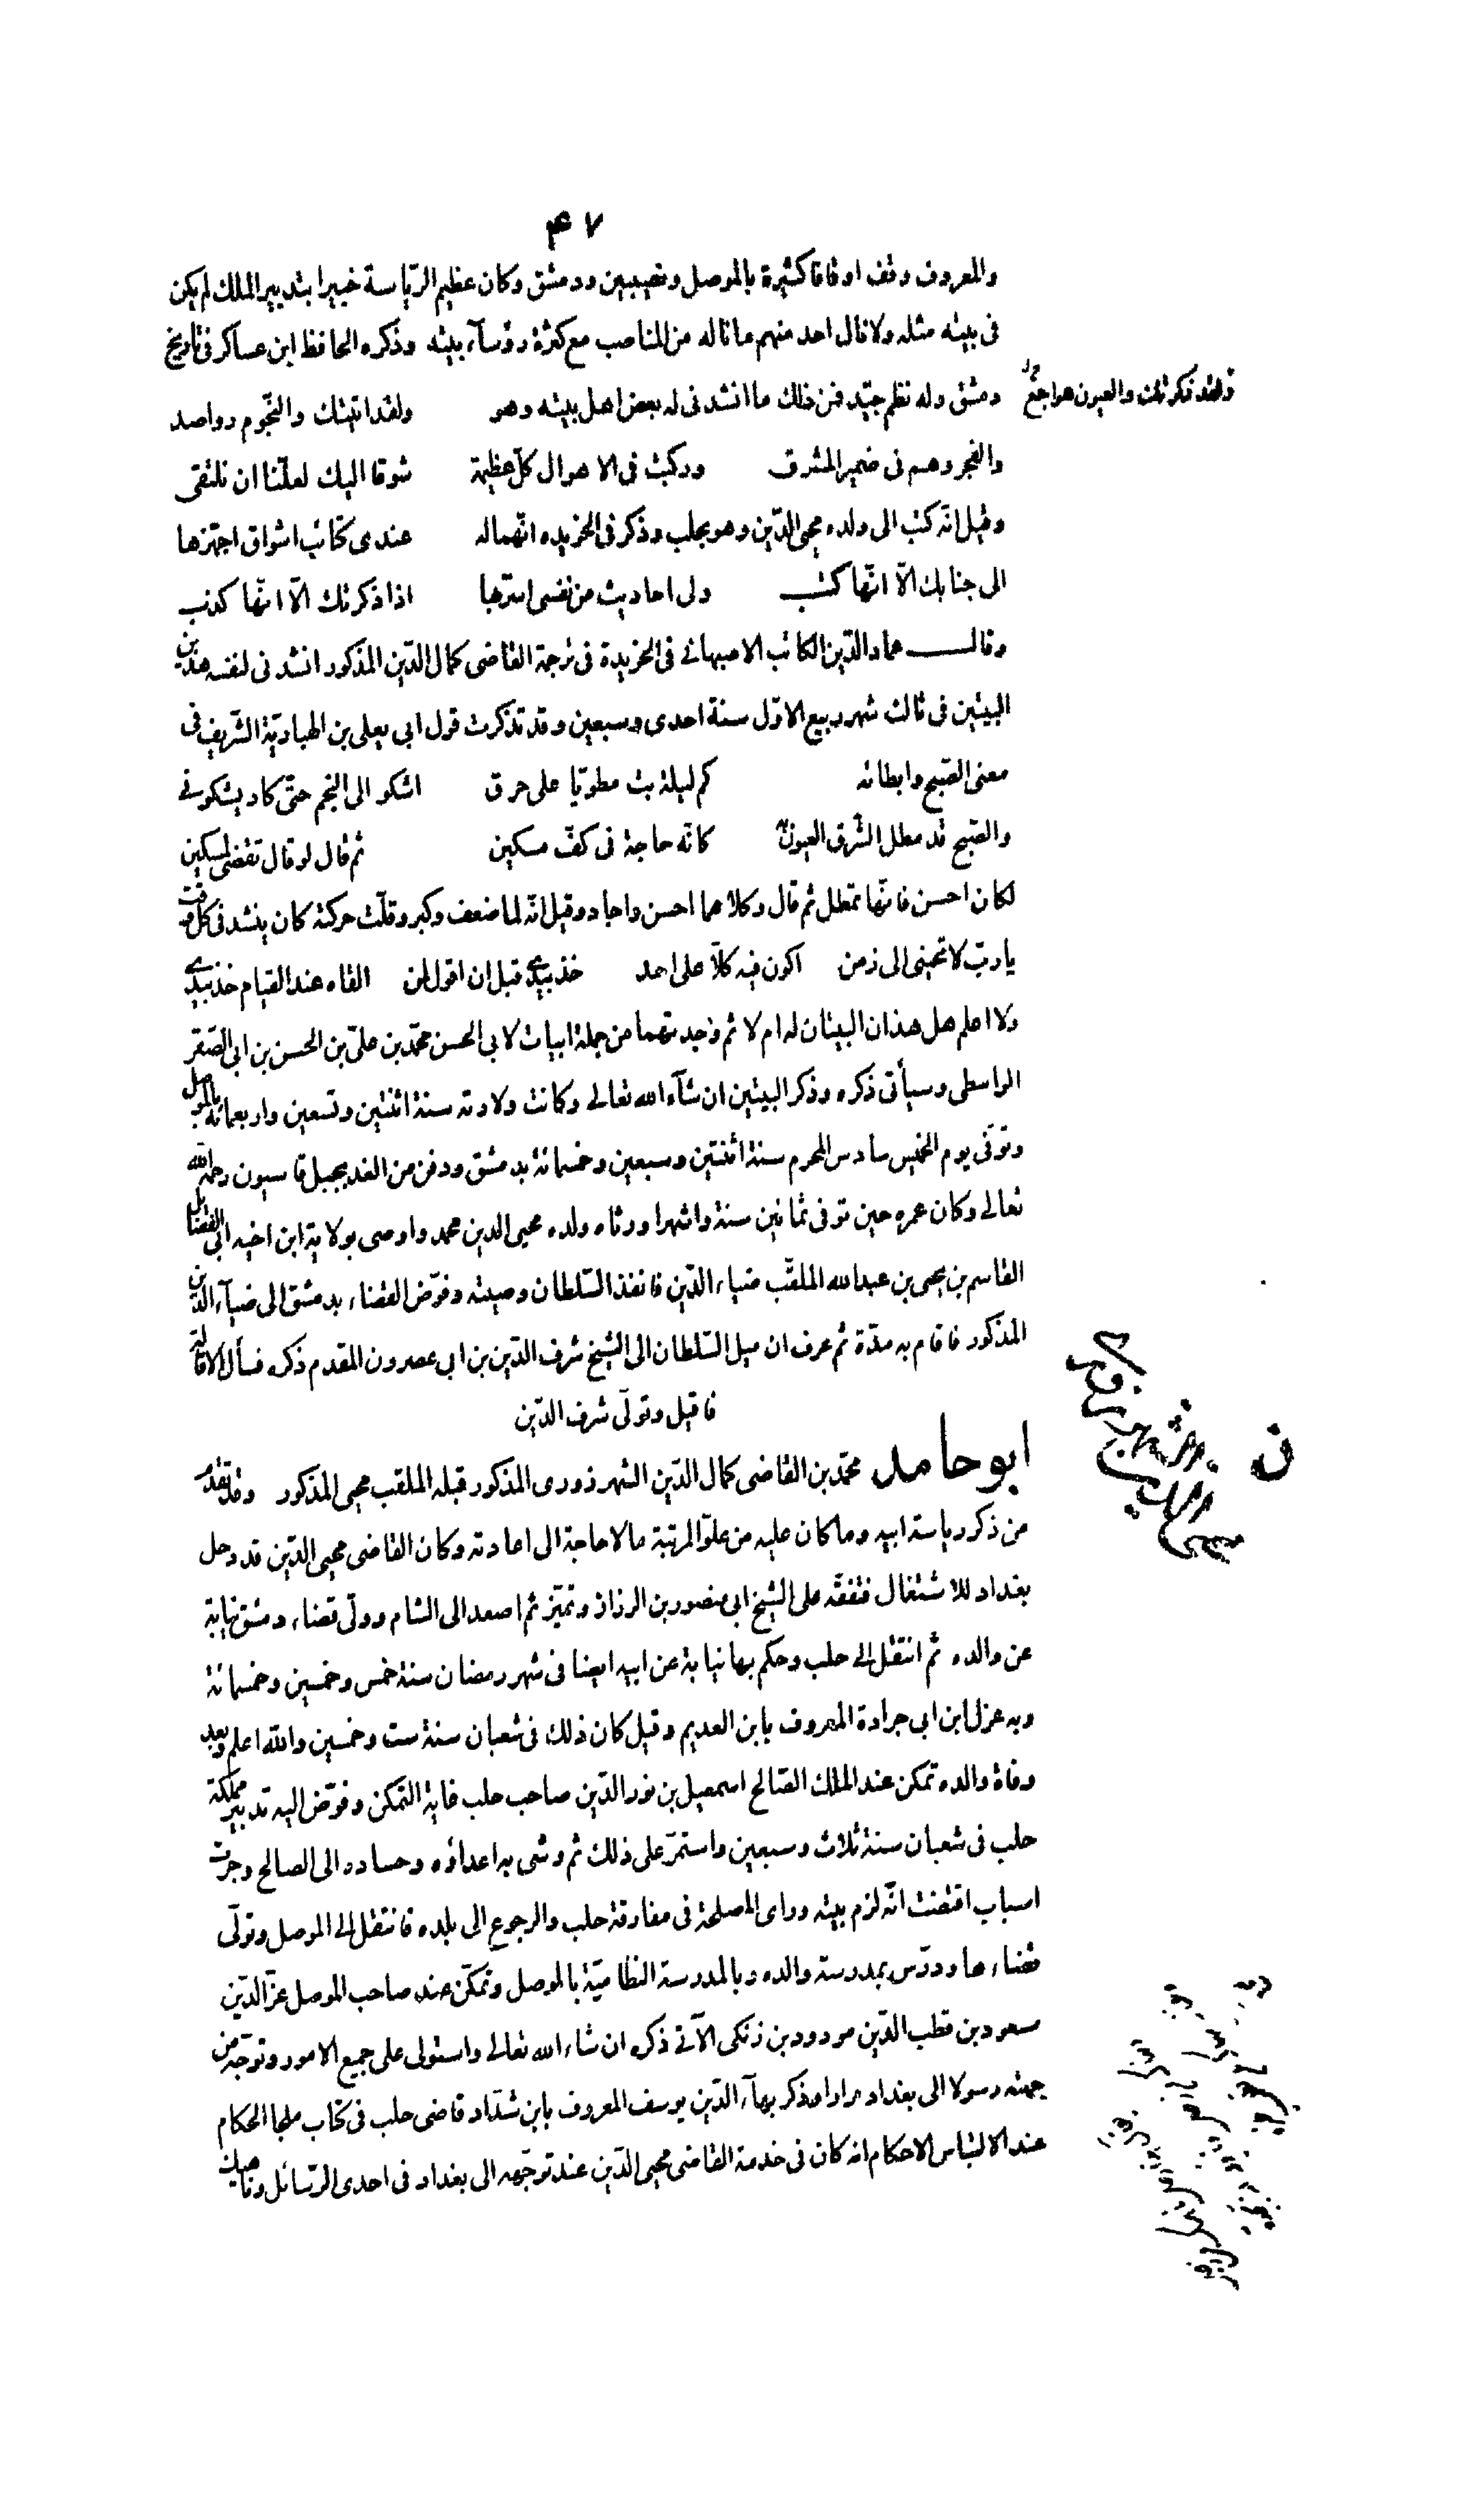 ۴۷
والمعروف وقف اوقافا كثيرة بالموصل ونصيبين ودمشق وكان عظيم الرّياسة خبيرا بتدبير الملك لم يكن
فى بيته مثله ولا نال احد منهم ما ناله من المناصب مع كثرة رؤسآء بيته وذكره الحافظ ابن عساكر فى تاريخ
دمشق وله نظم جيّد فمن ذلك ما انشدنى له بعض اهل بيته وهو ولقد اتيتك والنّجوم رواصد
ولقد ذكرتك والعيون هواجع
والفجر وهم فى ضمير المشرق وركبت فى الاهوال كلّ عظيمة شوقا اليك لعلّنا ان نلتقى
وقيل انّه كتب الى ولده محيى الدّين وهو بحلب وذكر فى الخريده انّهما له عندى كتائب اشواق اجهّزها
الى جنابك الّا انّها كتب ولى احاديث من نفسى اسرّبها اذا ذكرتك الّا انّها كذب
وقال عماد الدّين الكاتب الاصبهانى فى الخريدة فى ترجمة القاضى كمال الدّين المذكور انشدنى لنفسه هذين
البيتين فى ثالث شهر ربيع الاوّل سنة احدى وسبعين وقد تذكرت قول ابى يعلى بن الهباريّة الشّريف فى
معنى الصّبح وابطائه كم ليلة بت مطويّا على حرق اشكو الى النجم حتّى كاد يشكونى
والصّبح قد مطل الشّرق العيون به كانّه حاجة فى كفّ مسكين ثم قال لو قال تقضى لمسكين
لكان احسن فانّها تمطل ثم قال وكلاهما احسن واجاد وقيل انّه لما ضعف وكبر وقلّت حركته كان ينشد فى كل وقت
يا ربّ لا تحينى الى زمن اكون فيه كلّا على احد خذ بيدى قبل ان اقول لمن القاه عند القيام خذ بيدى
ولا اعلم هل هذان البيتان له ام لا ثم وجدتهما من جملة ابيات لابى الحسن محمّد بن علىّ بن الحسن بن ابى الصّقر
الواسطى وسيأتى ذكره وذكر البيتين ان شآء الله تعالى وكانت ولادته سنة اثنتين وتسعين واربعمائة بالموصل
وتوفى يوم الخميس سادس المحرم سنة اثنتين وسبعين وخمسمائة بدمشق ودفن من الغد بجبل قاسيون رحمه الله
تعالى وكان عمره حين توفى ثمانين سنة واشهرا ورثاه ولده محيى الدين محمد واوصى بولاية ابن اخيه ابى الفضايل
القاسم بن يحيى بن عبد الله الملقّب ضياء الدّين فانفذ السّلطان وصيته وفوّض القضاء بدمشق الى ضيآء الدّين
المذكور فاقام به مدّة ثم عرف ان ميل السّلطان الى الشيخ شرف الدّين بن ابى عصرون المقدم ذكره فسأل الاقالة
فاقيل وتولّى شرف الدّين
ابو حامد محمّد بن القاضى كمال الدّين الشهرزورى المذكور قبله الملقب محيى المذكور وقد تقدّم
من ذكر رياسة ابيه وما كان عليه من علوّ المرتبة ما لا حاجة الى اعادته وكان القاضى محيى الدّين قد دخل
بغداد للاشتغال فتفقّه على الشيخ ابى منصور بن الرزاز وتميّز ثم اصعد الى الشام وولّى قضاء دمشق نيابة
عن والده ثم انتقل الى حلب وحكم بها نيابة عن ابيه ايضا فى شهر رمضان سنة خمس وخمسين وخمسمائة
وبه عزل ابن ابى جرادة المعروف بابن العديم وقيل كان ذلك فى شعبان سنة ست وخمسين والله اعلم وبعد
وفاة والده تمكن عند الملك الصّالح اسمعيل بن نور الدّين صاحب حلب غاية التمكن وفوّض اليه تدبير مملكة
حلب فى شعبان سنة ثلاث وسبعين واستمرّ على ذلك ثم وشى به اعداؤه وحساده الى الصالح وجرت
اسباب اقتضت انّه لزم بيته وراى المصلحة فى مفارقة حلب والرجوع الى بلده فانتقل الى الموصل وتولّى
قضاءها ودرّس بمدرسة والده وبالمدرسة النظاميّة بالموصل وتمكّن عند صاحب الموصل عزّ الدّين
مسعود بن قطب الدّين مودود بن زنكى الآتى ذكره ان شاء الله تعالى واستولى على جميع الامور وتوجّه من
جهته رسولا الى بغداد مرارا وذكر بهآء الدّين يوسف المعروف بابن شدّاد قاضى حلب فى كتاب ملجا الحكام
عند التباس الاحكام انه كان فى خدمة القاضى محيى الدّين عند توجّهه الى بغداد فى احدى الرّسائل وناهيك